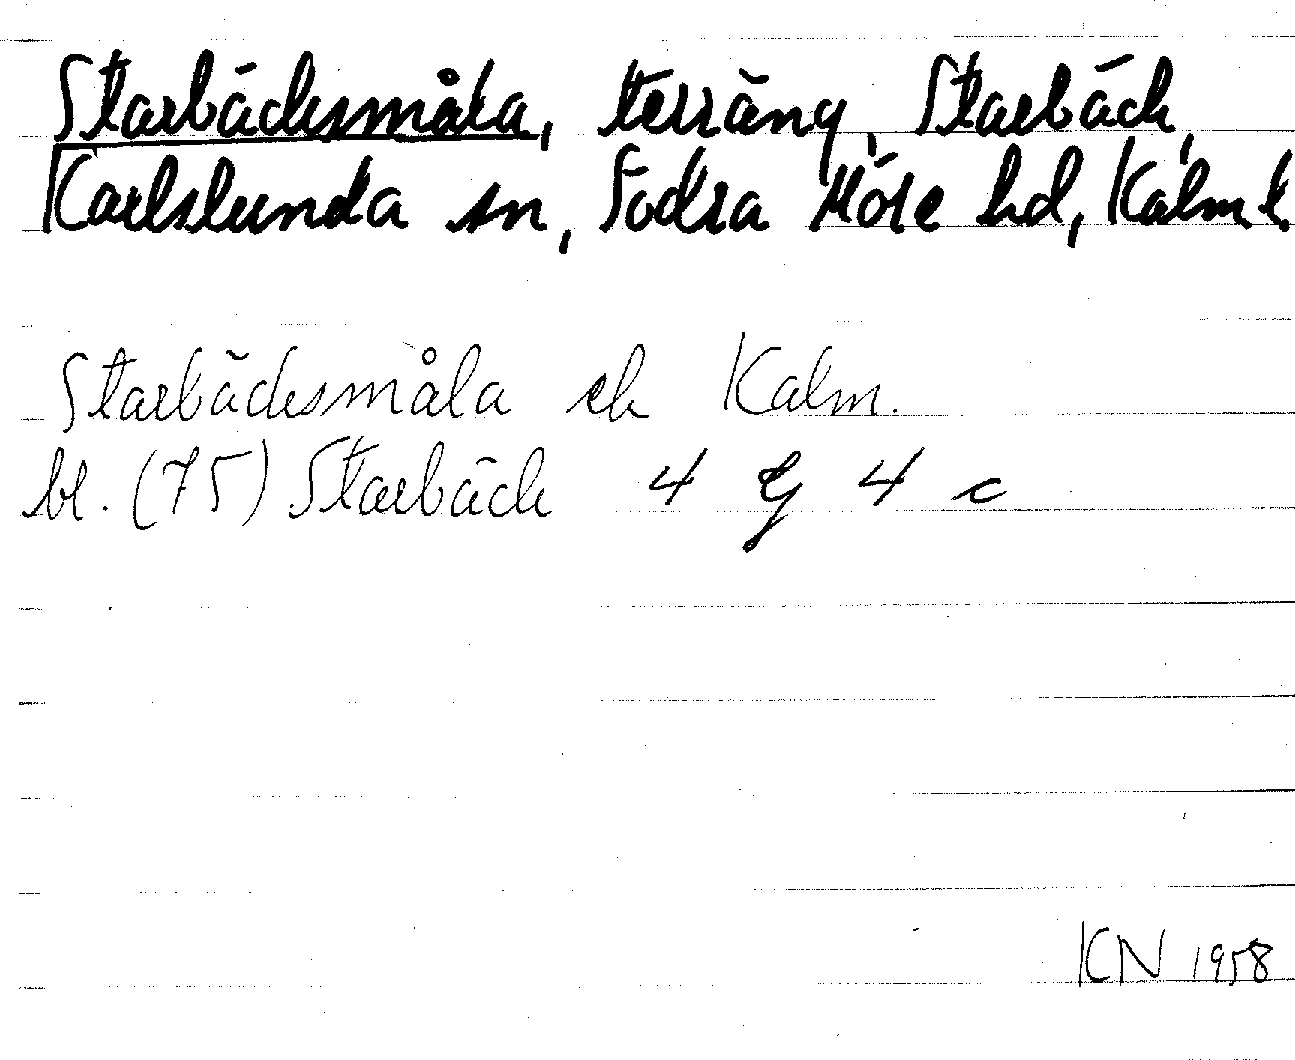 Starbäcksmåla, terräng, Starbäck,
Karlslunda sn, Södra Möre hd, Kalm l.
Starbäcksmåla ek Kalm.
bl. (75) Starbäck 4 G 4 c
KN 1958